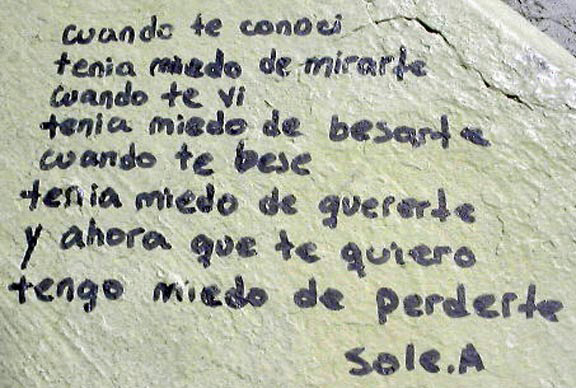 cuando te conoci
tenia miedo de mirarte
cuando te vi
tenia miedo de besarte
cuando te bese
tenia miedo de quererte
y ahora que te quiero
tengo miedo de perderte
sole.A